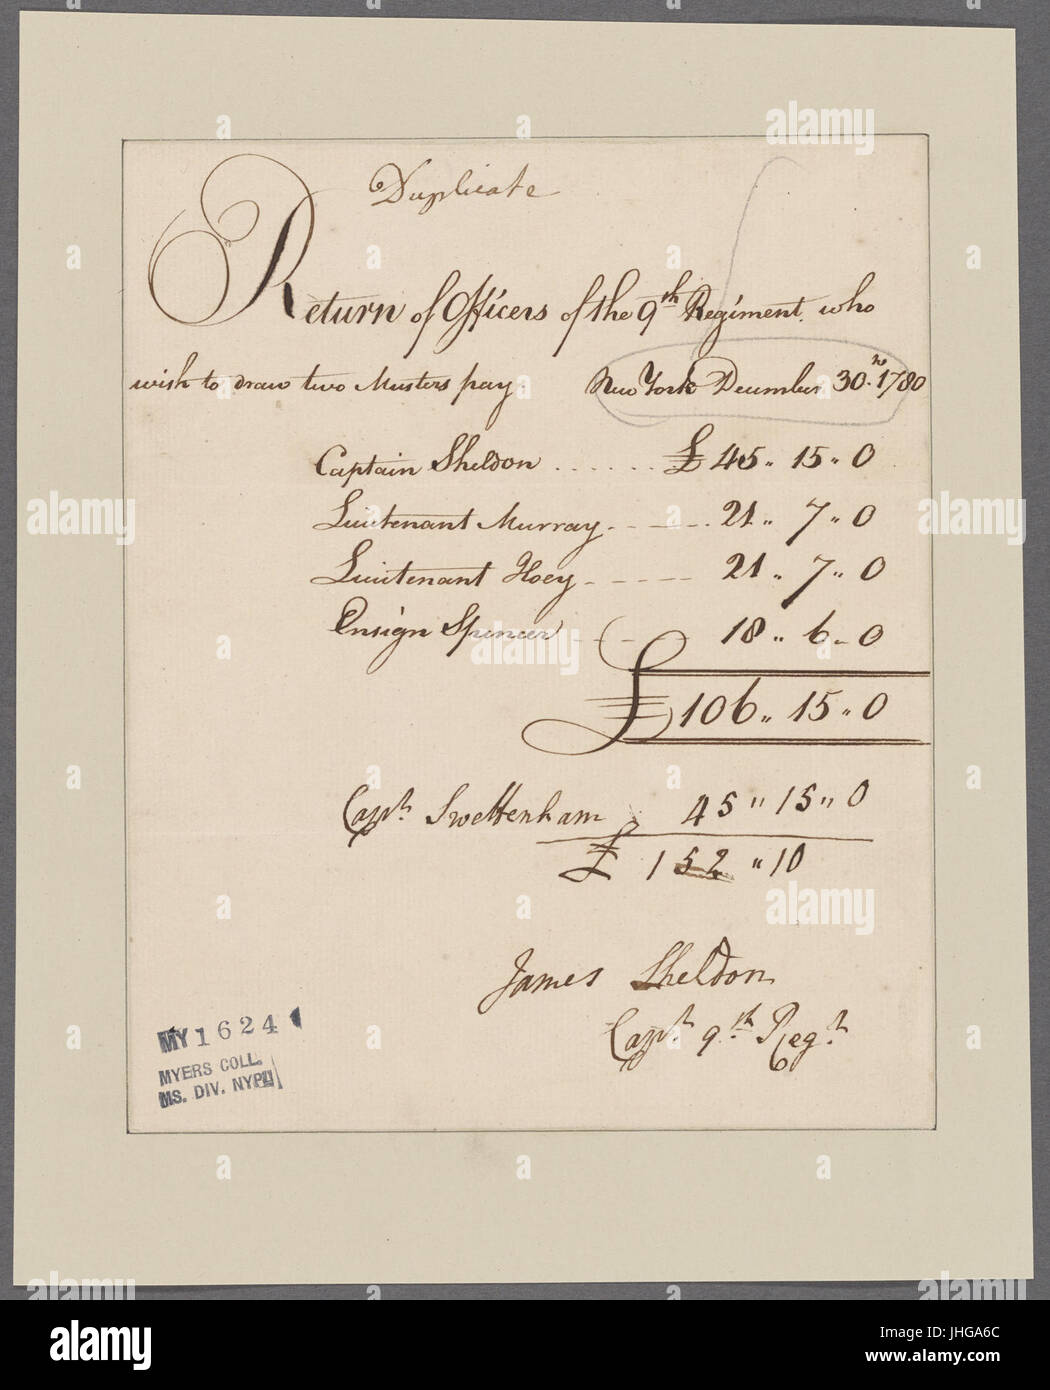 Duplicate
Return of Officers of the 9th Regiment who
wish to draw two Musters pay. New York December 30th 1780
Captain Sheldon ...... £ 45 " 15 " 0
Lieutenant Murray - - - - . 21 " 7 " 0
Lieutenant Hoey - - - - - 21 " 7 " 0
Ensign Spencer - - - - 18 " 6 " 0
£ 106 " 15 " 0
Capt. Swettenham 45 " 15 " 0
£ 152 " 10
James Sheldon
Capt. 9th Regt.
MY 1624
MYERS COLL.
MS. DIV. NYPL
alamy
alamy
Image ID: JHGA6C
www.alamy.com